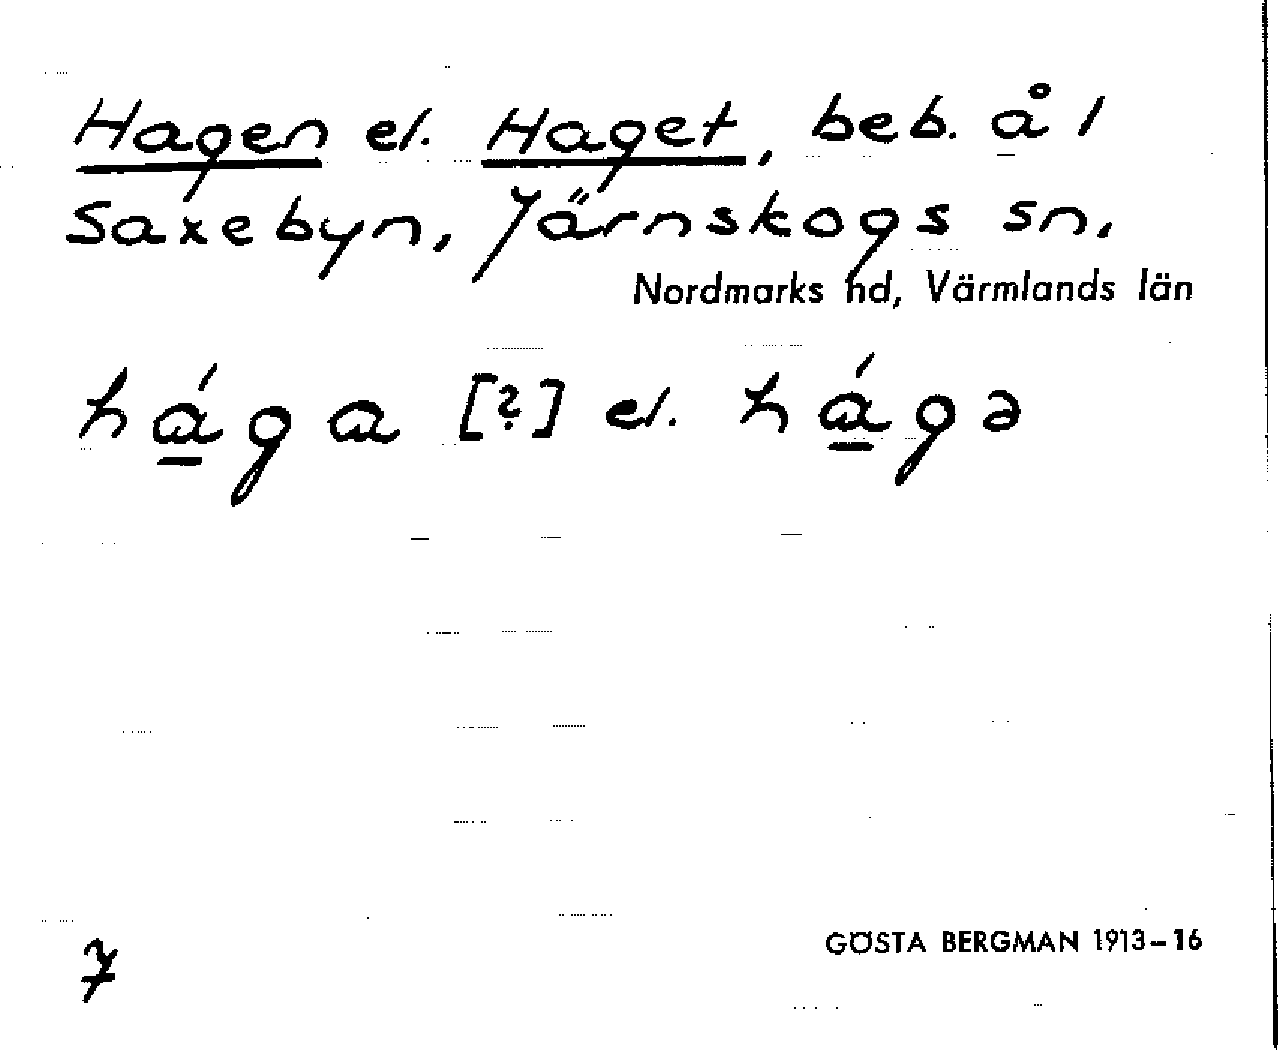 Hagen el. Haget, beb. å 1
Saxebyn, Järnskogs sn,
Nordmarks hd, Värmlands län
há̱ga [?] el. há̱gə
7
GÖSTA BERGMAN 1913–16